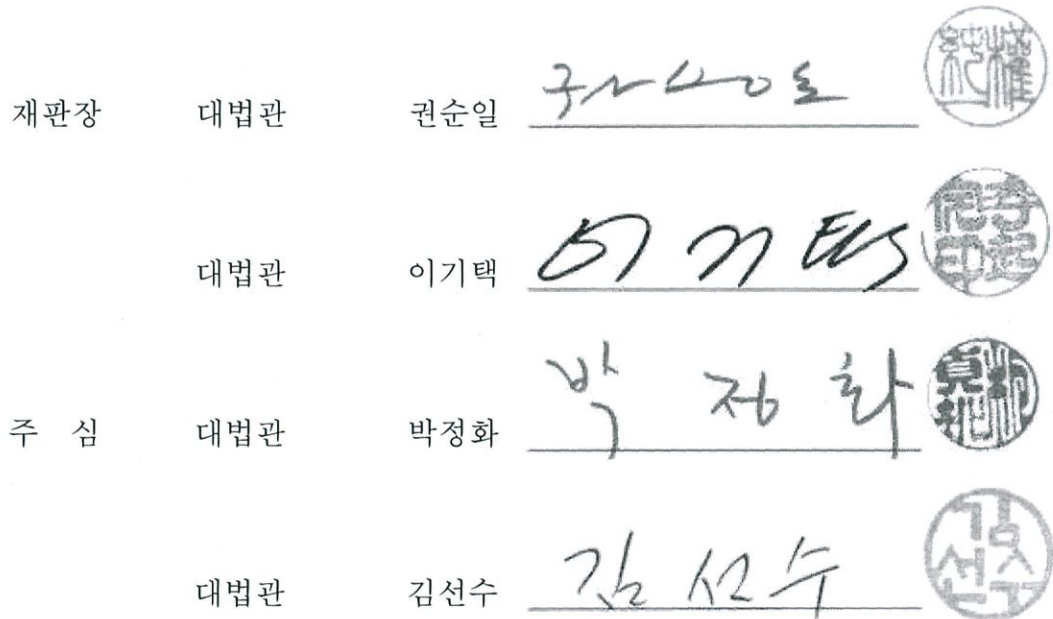 재판장 대법관 권순일 권순일
대법관 이기택 이기택
주 심 대법관 박정화 박정화
대법관 김선수 김선수 김선수